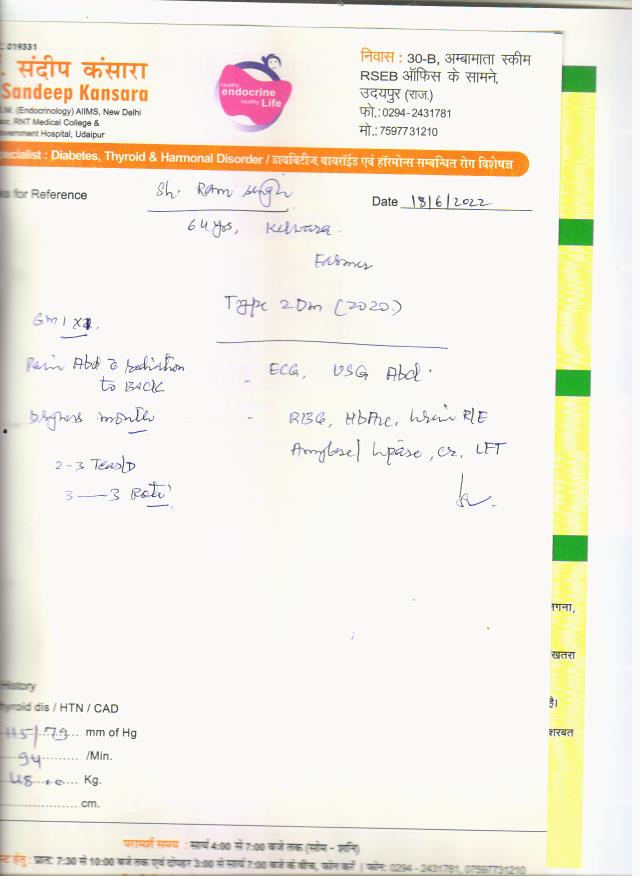 : 019331
. संदीप कंसारा
Sandeep Kansara
.M. (Endocrinology) AIIMS, New Delhi
or, RNT Medical College &
vernment Hospital, Udaipur
healthy
endocrine
healthy Life
निवास : 30-B, अम्बामाता स्कीम
RSEB ऑफिस के सामने,
उदयपुर (राज.)
फो.: 0294-2431781
मो.: 7597731210
pecialist : Diabetes, Thyroid & Harmonal Disorder / डायबिटीज, थायरॉईड एवं हॉरमोन्स सम्बन्धित रोग विशेषज्ञ
ks for Reference
Sh. Ram Singh
Date 18/6/2022
64 yrs, Kelwara.
Farmer
Type 2 Dm (2020.)
Gm 1 x
Pain Abd c̄ Radiation
to BACK
- ECG, USG Abd.
Dryness mouth
- RBG, HbA1c, Urine R/E
Amylase / Lipase, cr, LFT
2-3 Teas/D
3 — 3 Roti
गना,
खतरा
है।
शरबत
History
hyroid dis / HTN / CAD
115/79 mm of Hg
94 /Min.
48 Kg.
cm.
परामर्श समय : सायं 4:00 से 7:00 बजे तक (सोम - शनि)
ट हेतु : प्रातः 7:30 से 10:00 बजे तक एवं दोपहर 3:00 से सायं 7:00 बजे के बीच, फोन करें | फोन: 0294 - 2431781, 07597731210